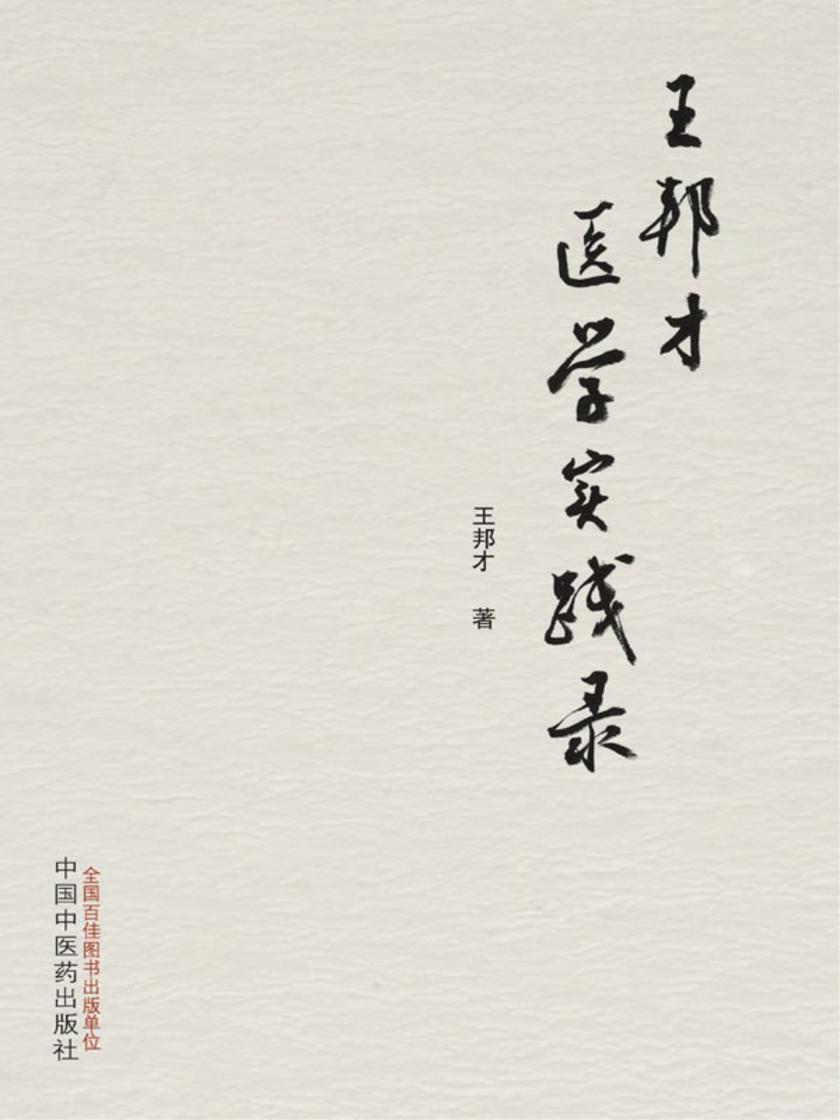 王邦才
医学实践录
王邦才 著
全国百佳图书出版单位
中国中医药出版社